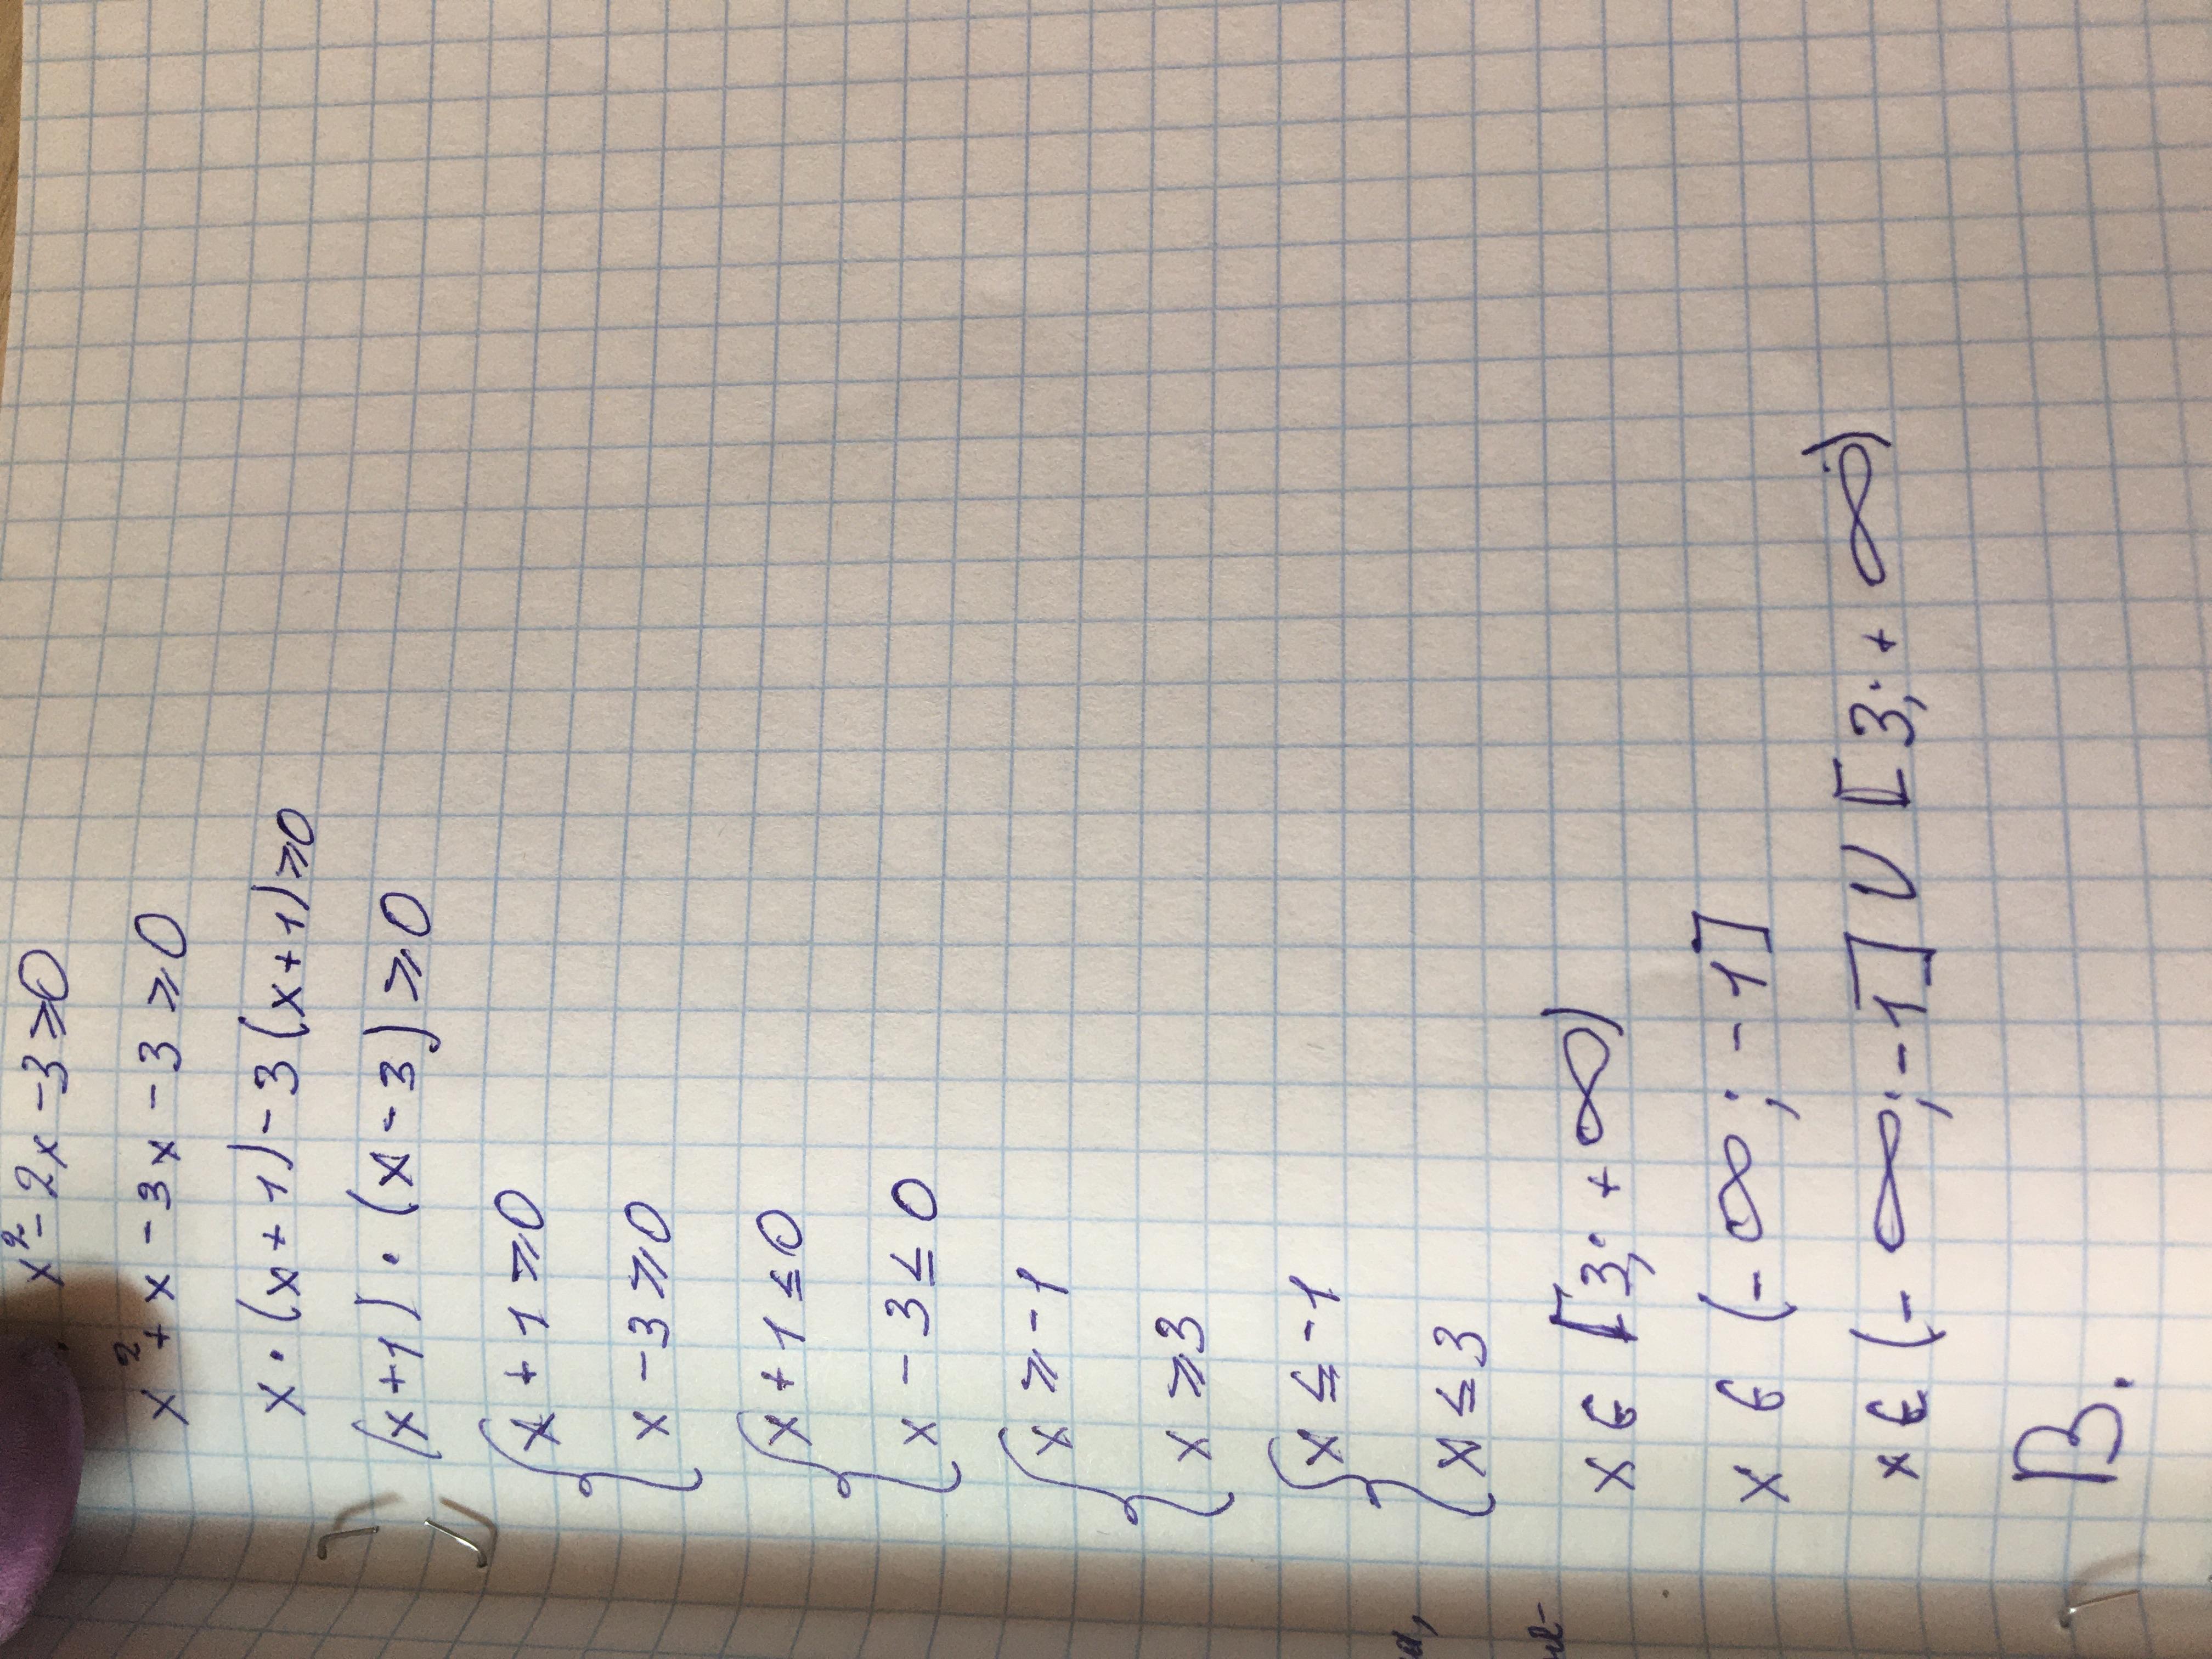 x²-2x-3≥0
x²+x-3x-3≥0
x·(x+1)-3(x+1)≥0
(x+1)·(x-3)≥0
{x+1≥0
x-3≥0
{x+1≤0
x-3≤0
{x≥-1
x≥3
{x≤-1
x≤3
x∈[3;+∞)
x∈(-∞;-1]
x∈(-∞;-1]∪[3;+∞)
В.